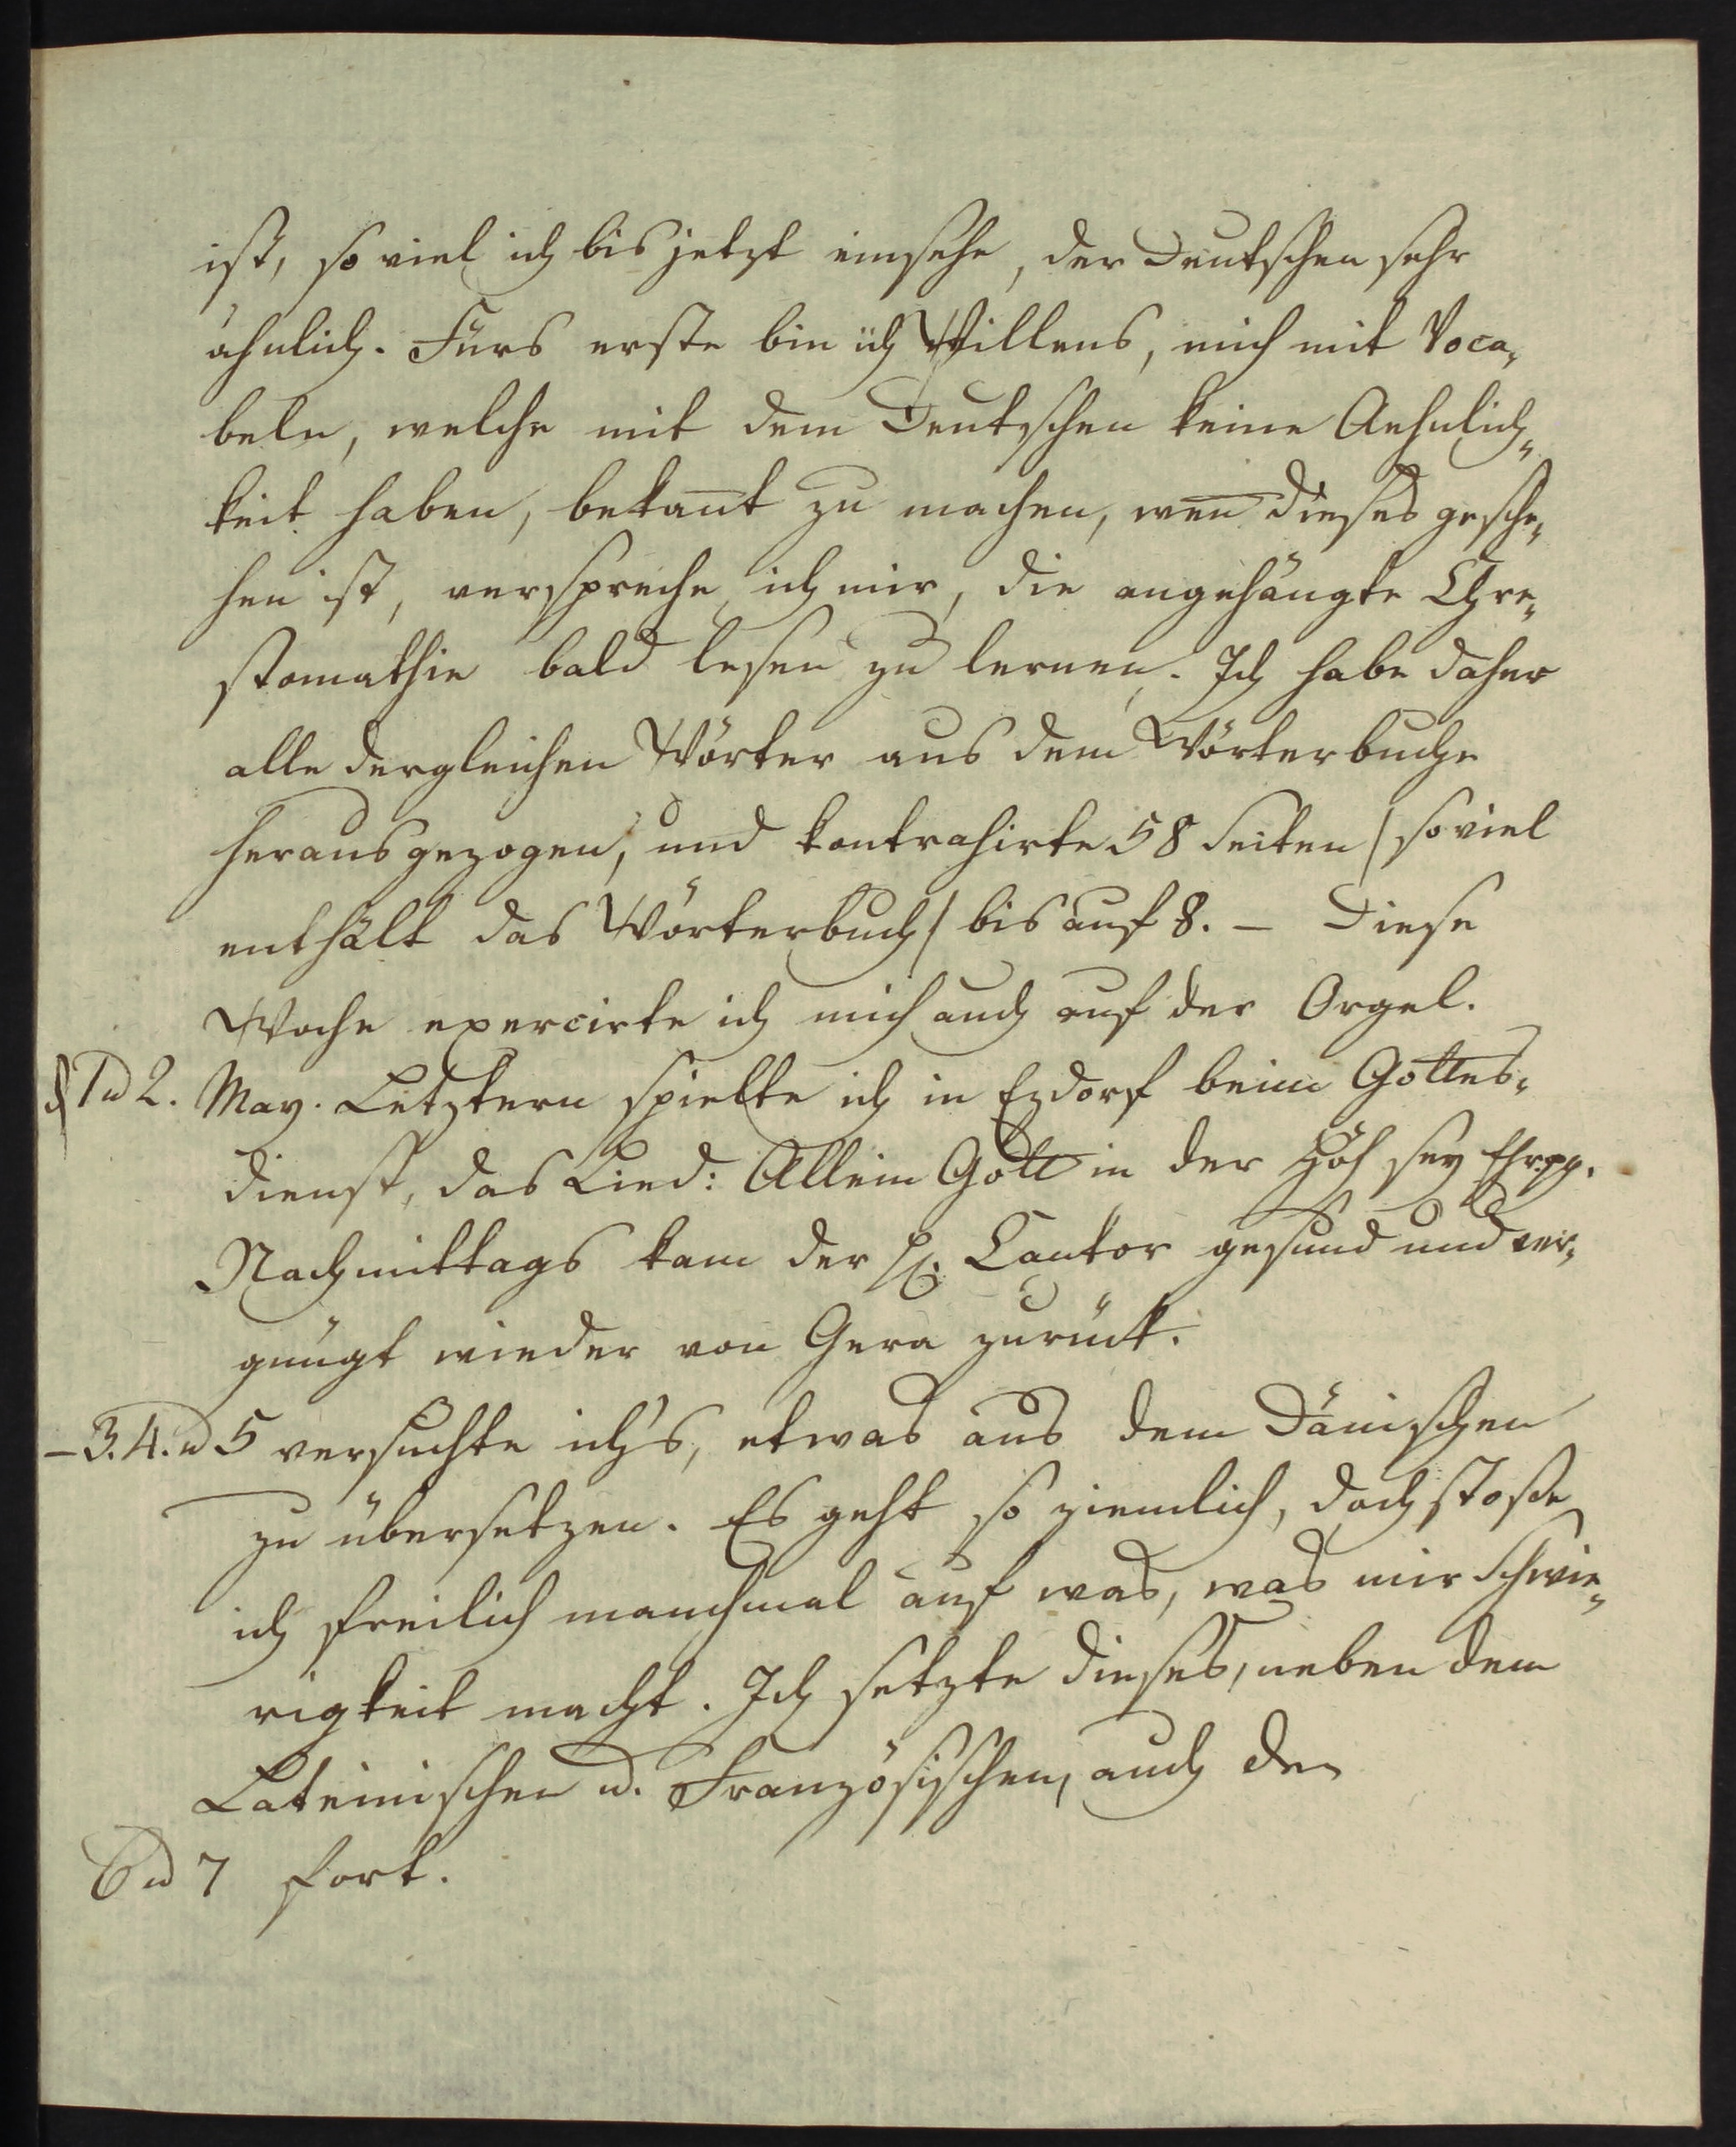 ist, so viel ich bis jetzt einsehe, der Deutschen sehr
ähnlich. Fürs erste bin ich Willens, mich mit Voca„
beln, welche mit dem Deutschen keine Aehnlich„
keit haben, bekan̅t zu machen, wen̅ dieses gesche„
hen ist, verspreche ich mir, die angehängte Chre„
stomathie bald lesen zu lernen. Ich habe daher
alle dergleichen Wörter aus dem Wörterbuche
herausgezogen, und kontrahirte 58 Seiten /soviel
enthält das Wörterbuch/ bis auf 8. – Diese
Woche exercirte ich mich auch auf der Orgel.
d 1 u 2. May. Letztern spielte ich in Ezdorf beim Gottes„
dienst, das Lied: Allein Gott in der Höh sey Ehr pp.
Nachmittags kam der H. Cantor gesund und ver„
gnügt wieder von Gera zurück.
– 3. 4. u 5 versuchte ich's, etwas aus dem Dänischen
zu übersetzen. Es geht so ziemlich, doch stoße
ich freilich manchmal auf was, was mir Schwie„
rigkeit macht. Ich setzte dieses, neben dem
Lateinischen u. Französischen, auch den
6 u 7 fort.